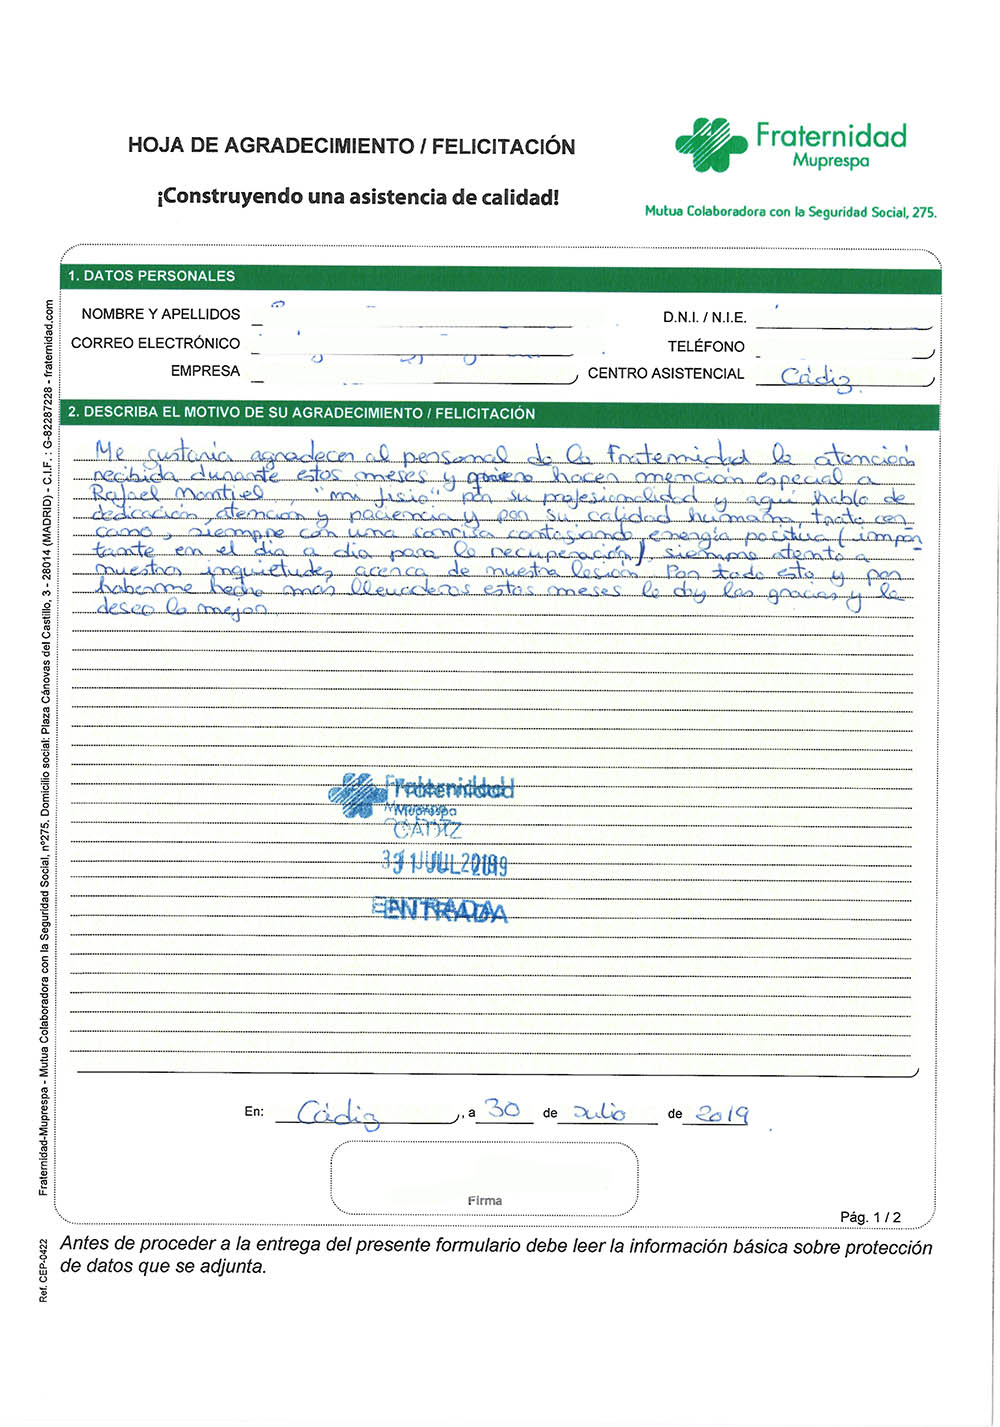 HOJA DE AGRADECIMIENTO / FELICITACIÓN
¡Construyendo una asistencia de calidad!
Fraternidad
Muprespa
Mutua Colaboradora con la Seguridad Social, 275.
1. DATOS PERSONALES
NOMBRE Y APELLIDOS
D.N.I. / N.I.E.
CORREO ELECTRÓNICO
TELÉFONO
EMPRESA
CENTRO ASISTENCIAL Cádiz
2. DESCRIBA EL MOTIVO DE SU AGRADECIMIENTO / FELICITACIÓN
Me gustaría agradecer al personal de la Fraternidad la atención
recibida durante estos meses y quiero hacer mención especial a
Rafael Montiel, "mi fisio" por su profesionalidad y aquí hablo de
dedicación, atención y paciencia y por su calidad humana, trato cer
cano, siempre con una sonrisa contagiando energía positiva (impor
tante en el día a día para la recuperación), siempre atento a
nuestras inquietudes acerca de nuestra lesión. Por todo esto y por
haberme hecho más llevaderos estos meses le doy las gracias y le
deseo lo mejor.
Fraternidad
Muprespa
CADIZ
31 JUL 2019
ENTRADA
En: Cádiz, a 30 de Julio de 2019
Firma
Pág. 1 / 2
Antes de proceder a la entrega del presente formulario debe leer la información básica sobre protección
de datos que se adjunta.
Fraternidad-Muprespa - Mutua Colaboradora con la Seguridad Social, nº275. Domicilio social: Plaza Cánovas del Castillo, 3 - 28014 (MADRID) - C.I.F. : G-82287228 - fraternidad.com
Ref. CEP-0422